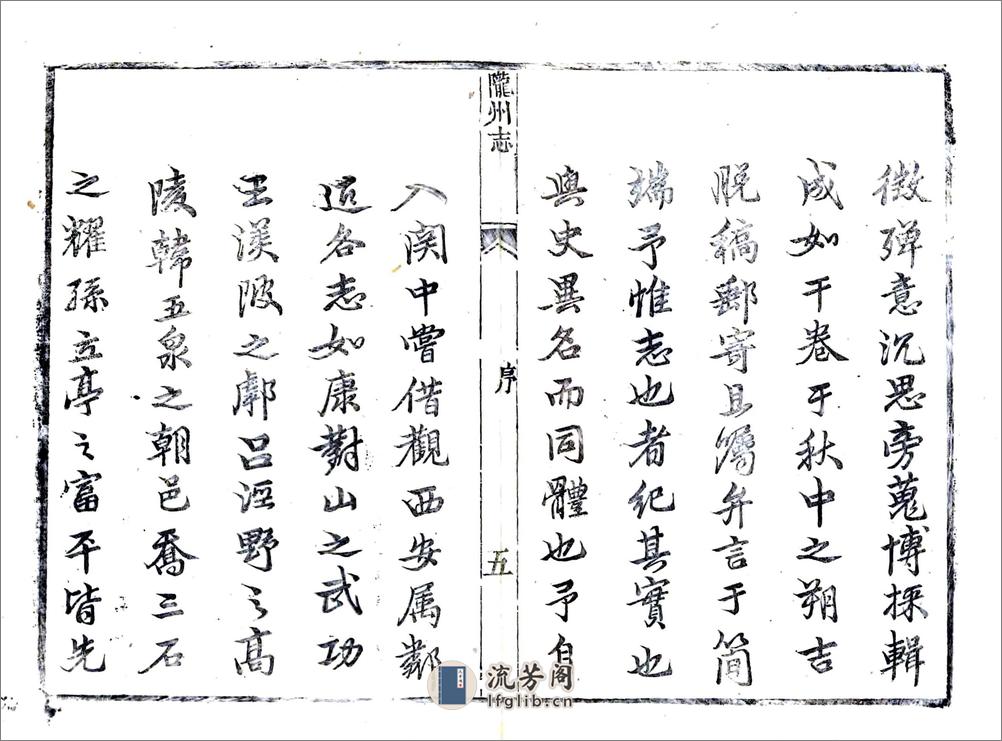 微殫意沉思旁蒐博採輯
成如干卷于秋中之朔吉
脫稿郵寄且囑弁言于簡
端予惟志也者紀其實也
與史異名而同體也予自
隴州志
序
五
入関中嘗借觀西安属鄰
近各志如康對山之武功
王渼陂之鄠呂涇野之高
陵韓五泉之朝邑喬三石
之耀孫立亭之富平皆先
流芳阁
lfglib.cn